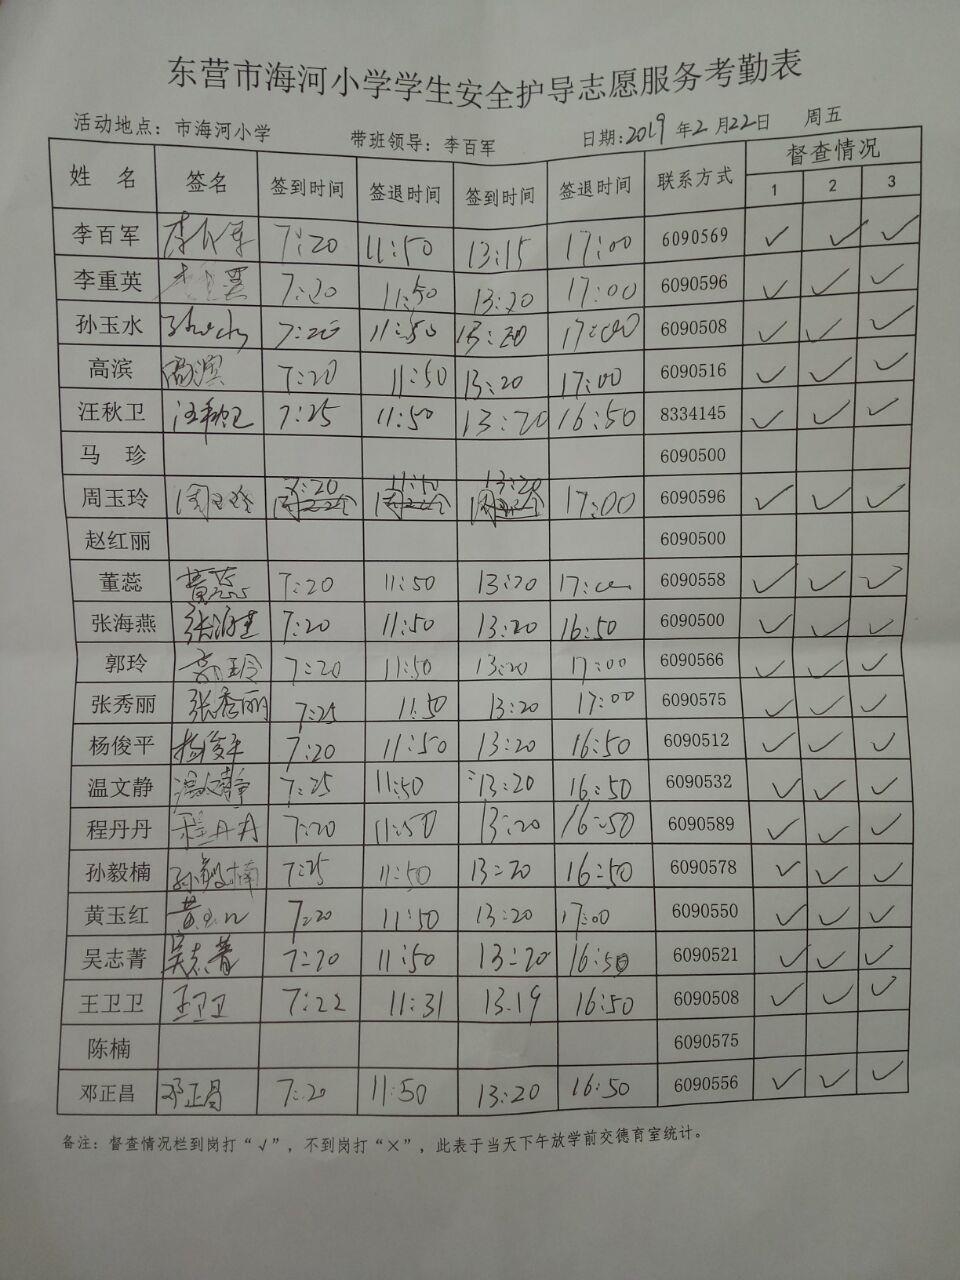 东营市海河小学学生安全护导志愿服务考勤表
活动地点：市海河小学 带班领导：李百军 日期：2019 年 2 月 22 日 周五
姓 名 签名 签到时间 签退时间 签到时间 签退时间 联系方式 督查情况
1 2 3
李百军 李百军 7:20 11:50 13:15 17:00 6090569 ✓ ✓ ✓
李重英 李重英 7:20 11:50 13:20 17:00 6090596 ✓ ✓ ✓
孙玉水 7:20 11:50 13:20 17:00 6090508 ✓ ✓ ✓
高滨 高滨 7:20 11:50 13:20 17:00 6090516 ✓ ✓ ✓
汪秋卫 汪秋卫 7:25 11:50 13:20 16:50 8334145 ✓ ✓ ✓
马 珍 6090500
周玉玲 周玉玲 7:20 11:50 13:20 17:00 6090596 ✓ ✓ ✓
赵红丽 6090500
董蕊 董蕊 7:20 11:50 13:20 17:00 6090558 ✓ ✓ ✓
张海燕 张海燕 7:20 11:50 13:20 16:50 6090500 ✓ ✓ ✓
郭玲 郭玲 7:20 11:50 13:20 17:00 6090566 ✓ ✓ ✓
张秀丽 张秀丽 7:25 11:50 13:20 17:00 6090575 ✓ ✓ ✓
杨俊平 杨俊平 7:20 11:50 13:20 16:50 6090512 ✓ ✓ ✓
温文静 温文静 7:25 11:50 13:20 16:50 6090532 ✓ ✓ ✓
程丹丹 程丹丹 7:20 11:50 13:20 16:50 6090589 ✓ ✓ ✓
孙毅楠 孙毅楠 7:25 11:50 13:20 16:50 6090578 ✓ ✓ ✓
黄玉红 黄玉红 7:20 11:50 13:20 17:00 6090550 ✓ ✓ ✓
吴志菁 吴志菁 7:20 11:50 13:20 16:50 6090521 ✓ ✓ ✓
王卫卫 王卫卫 7:22 11:31 13.19 16:50 6090508 ✓ ✓ ✓
陈楠 6090575
邓正昌 邓正昌 7:20 11:50 13:20 16:50 6090556 ✓ ✓ ✓
备注：督查情况栏到岗打“√”，不到岗打“×”，此表于当天下午放学前交德育室统计。